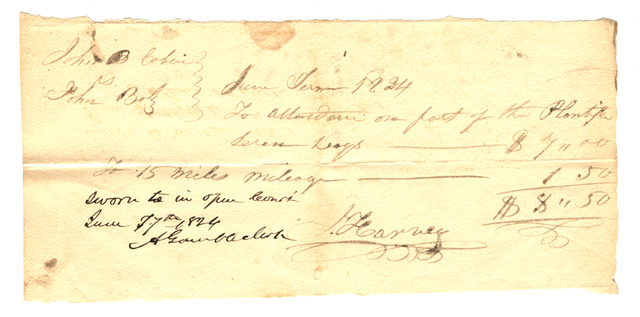 John B
vs
John Bolz
June Term 1824
To attendanc on part of the Plantiff
Seven days $ 7"00
To 15 miles mileage 1 50
$ 8"50
Sworn to in open Court
June 17th 1824
A Gamble Clerk
J. Harvey